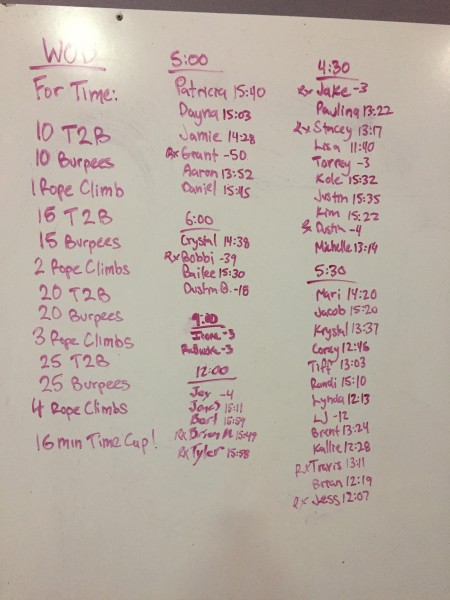 WOD
For Time:
10 T2B
10 Burpees
1 Rope Climb
15 T2B
15 Burpees
2 Rope Climbs
20 T2B
20 Burpees
3 Rope Climbs
25 T2B
25 Burpees
4 Rope Climbs
16 min Time Cap!
5:00
Patricia 15:40
Dayna 15:03
Jamie 14:28
Rx Grant -50
Aaron 13:52
Daniel 15:45
6:00
Crystal 14:38
Rx Bobbi -39
Bailee 15:30
Dustin B. -18
9:00
Irene -3
-3
12:00
Jay -4
Jones 15:11
Bart 15:59
Rx Brian M 15:49
Rx Tyler 15:58
4:30
Rx Jake -3
Paulina 13:22
Rx Stacey 13:17
Lisa 11:40
Torrey -3
Kole 15:32
Justin 15:35
Kim 15:22
Rx Dustin -4
Michelle 13:14
5:30
Mari 14:20
Jacob 15:20
Krystal 13:37
Corey 12:46
Tiff 13:03
Randi 15:10
Lynda 12:13
LJ -12
Brent 13:24
Kallie 12:28
Rx Travis 13:11
Brian 12:19
Rx Jess 12:07